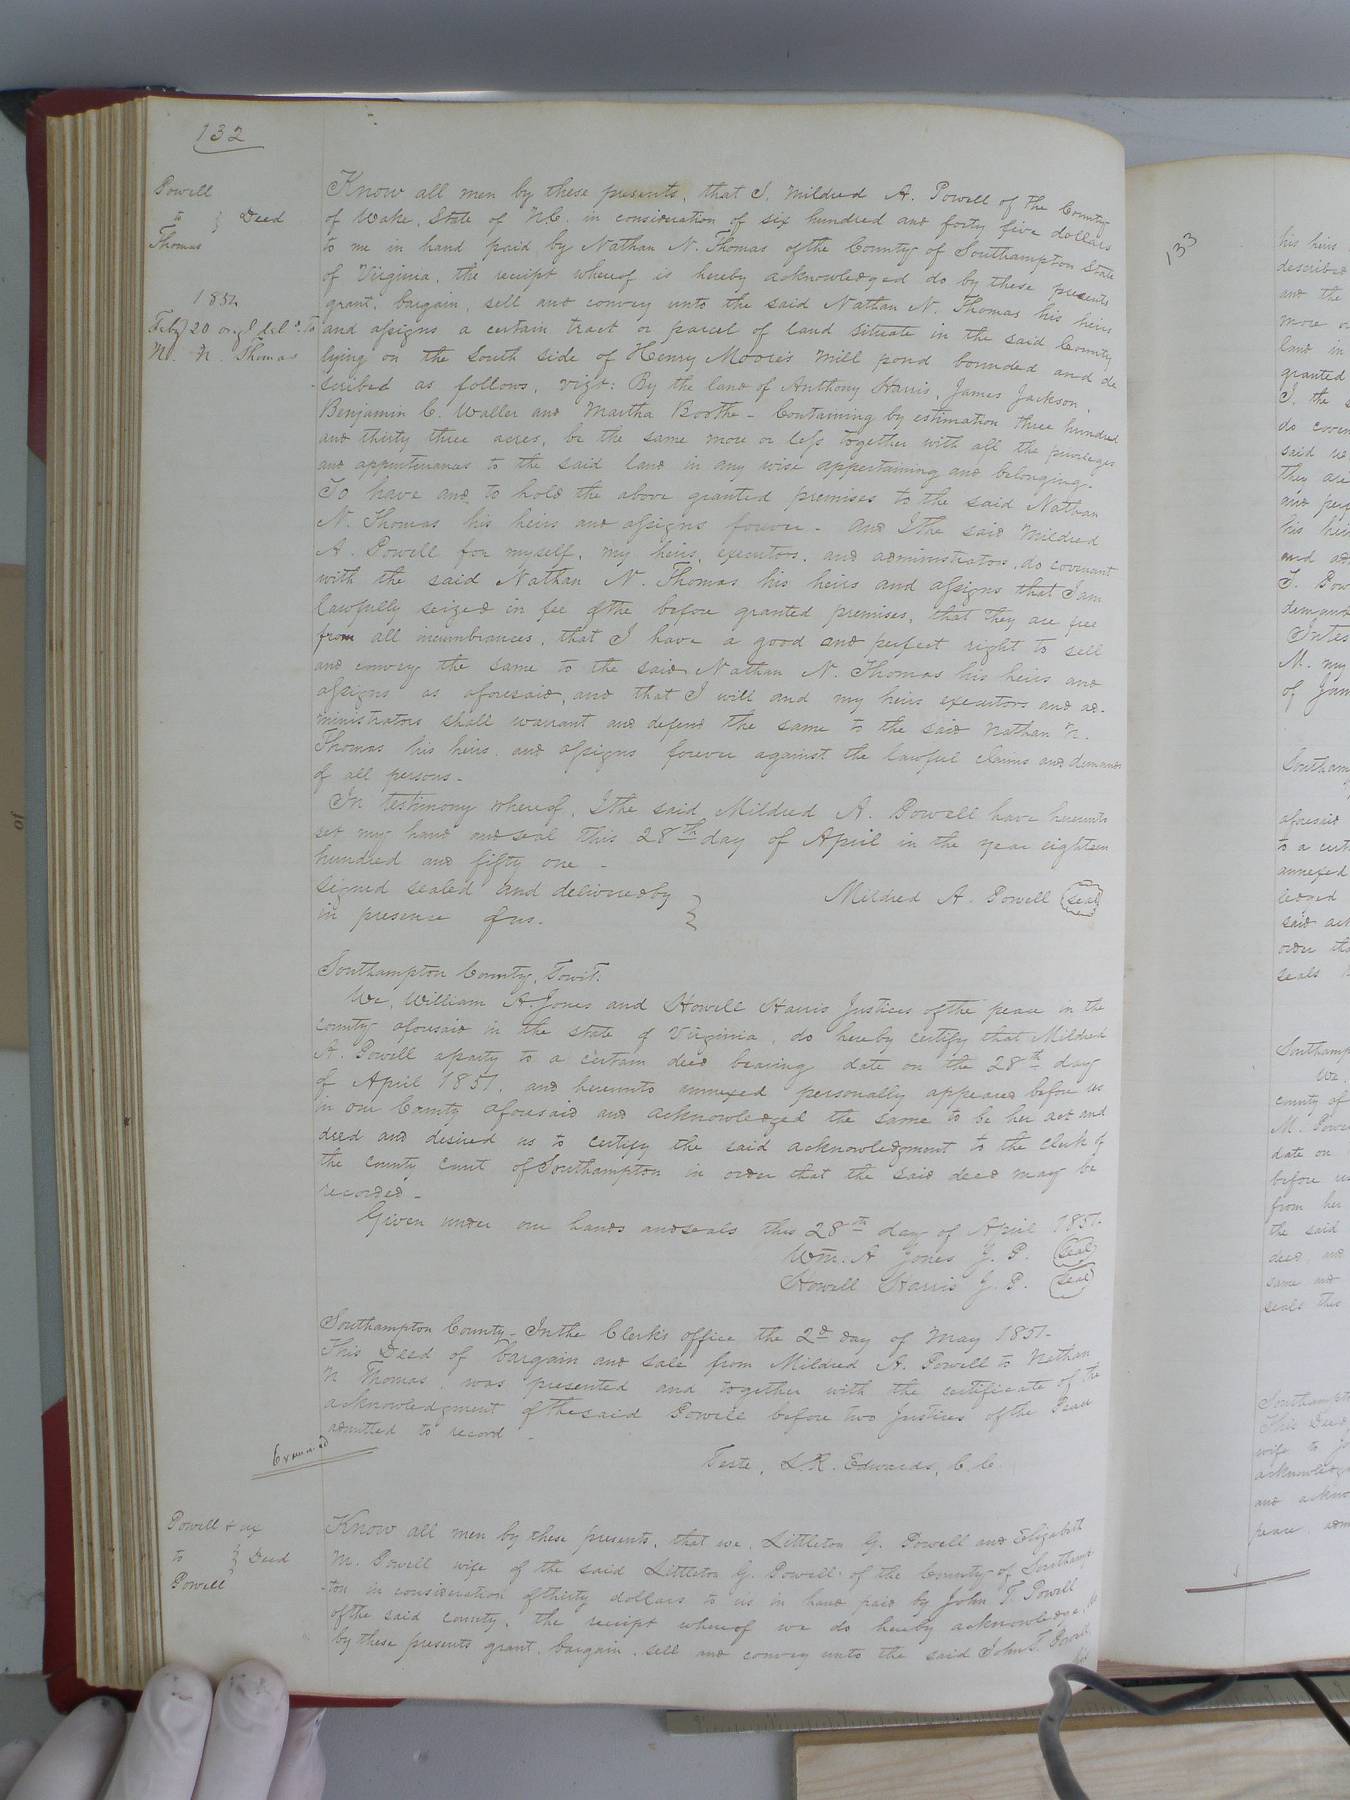 132
Powell
to } Deed
Thomas
1852
Feby 20 orig.l del.d to
N. N. Thomas
Know all men by these presents, that I, Mildred A. Powell of the County
of Wake, State of N.C. in consideration of six hundred and forty five dollars
to me in hand paid by Nathan N. Thomas of the County of Southampton State
of Virginia, the receipt whereof is hereby acknowledged do by these presents
grant, bargain, sell and convey unto the said Nathan N. Thomas his heirs
and assigns a certain tract or parcel of land situate in the said County
lying on the South side of Henry Moore's Mill pond bounded and de
-scribed as follows, vizt: By the land of Anthony Harris, James Jackson,
Benjamin C. Waller and Martha Boothe - Containing by estimation three hundred
and thirty three acres, be the same more or less together with all the privileges
and appurtenances to the said land in any wise appertaining and belonging.
To have and to hold the above granted premises to the said Nathan
N. Thomas his heirs and assigns forever - And I the said Mildred
A. Powell for myself, my heirs, executors, and administrators, do covenant
with the said Nathan N. Thomas his heirs and assigns that I am
lawfully seized in fee of the before granted premises, that they are free
from all incumbrances, that I have a good and perfect right to sell
and convey the same to the said Nathan N. Thomas his heirs and
assigns as aforesaid, and that I will and my heirs executors and ad-
ministrators shall warrant and defend the same to the said Nathan N.
Thomas his heirs and assigns forever against the lawful claims and demands
of all persons -
In testimony whereof, I the said Mildred A. Powell have hereunto
set my hand and seal this 28th day of April in the year eighteen
hundred and fifty one -
signed sealed and delivered by }
in presence of us.
Mildred A. Powell (seal)
Southampton County, Towit.
We, William A. Jones and Howell Harris Justices of the peace in the
county aforesaid in the state of Virginia, do hereby certify that Mildred
A. Powell a party to a certain deed bearing date on the 28th day
of April 1851. and hereunto annexed personally appeared before us
in our County aforesaid and acknowledged the same to be her act and
deed and desired us to certify the said acknowledgment to the Clerk of
the county court of Southampton in order that the said deed may be
recorded -
Given under our hands and seals this 28th day of April 1851.
Wm. A Jones J. P. (seal)
Howell Harris J. P. (seal)
Southampton County - In the Clerk's office the 2d day of May 1851 -
This Deed of bargain and sale from Mildred A. Powell to Nathan
N Thomas, was presented and together with the certificate of the
acknowledgment of the said Powell before two Justices of the Peace
admitted to record -
Examined
Teste, L. R. Edwards, C. C.
Powell & ux
to } Deed
Powell
Know all men by these presents, that we, Littleton G. Powell and Elizabeth
M. Powell wife of the said Littleton G. Powell of the County of Southamp-
ton in consideration of thirty dollars to us in hand paid by John T. Powell
of the said county, the receipt whereof we do hereby acknowledge, do
by these presents grant, bargain, sell and convey unto the said John T. Powell
his
133
his heirs
described
and the
more or
land in
granted
I, the
do coven
said
they are
and perf
his heir
and ad
T. Pow
demand
Intes
M. my
of Jan
Southam
aforesaid
to a cert
annexed
ledged
said ack
order tha
seals
Southamp
We,
county of
M. Powe
date on
before us
from her
the said
deed, and
same and
seals this
Southampto
This Deed
wife to Jo
acknowledg
and ackno
peace, adm